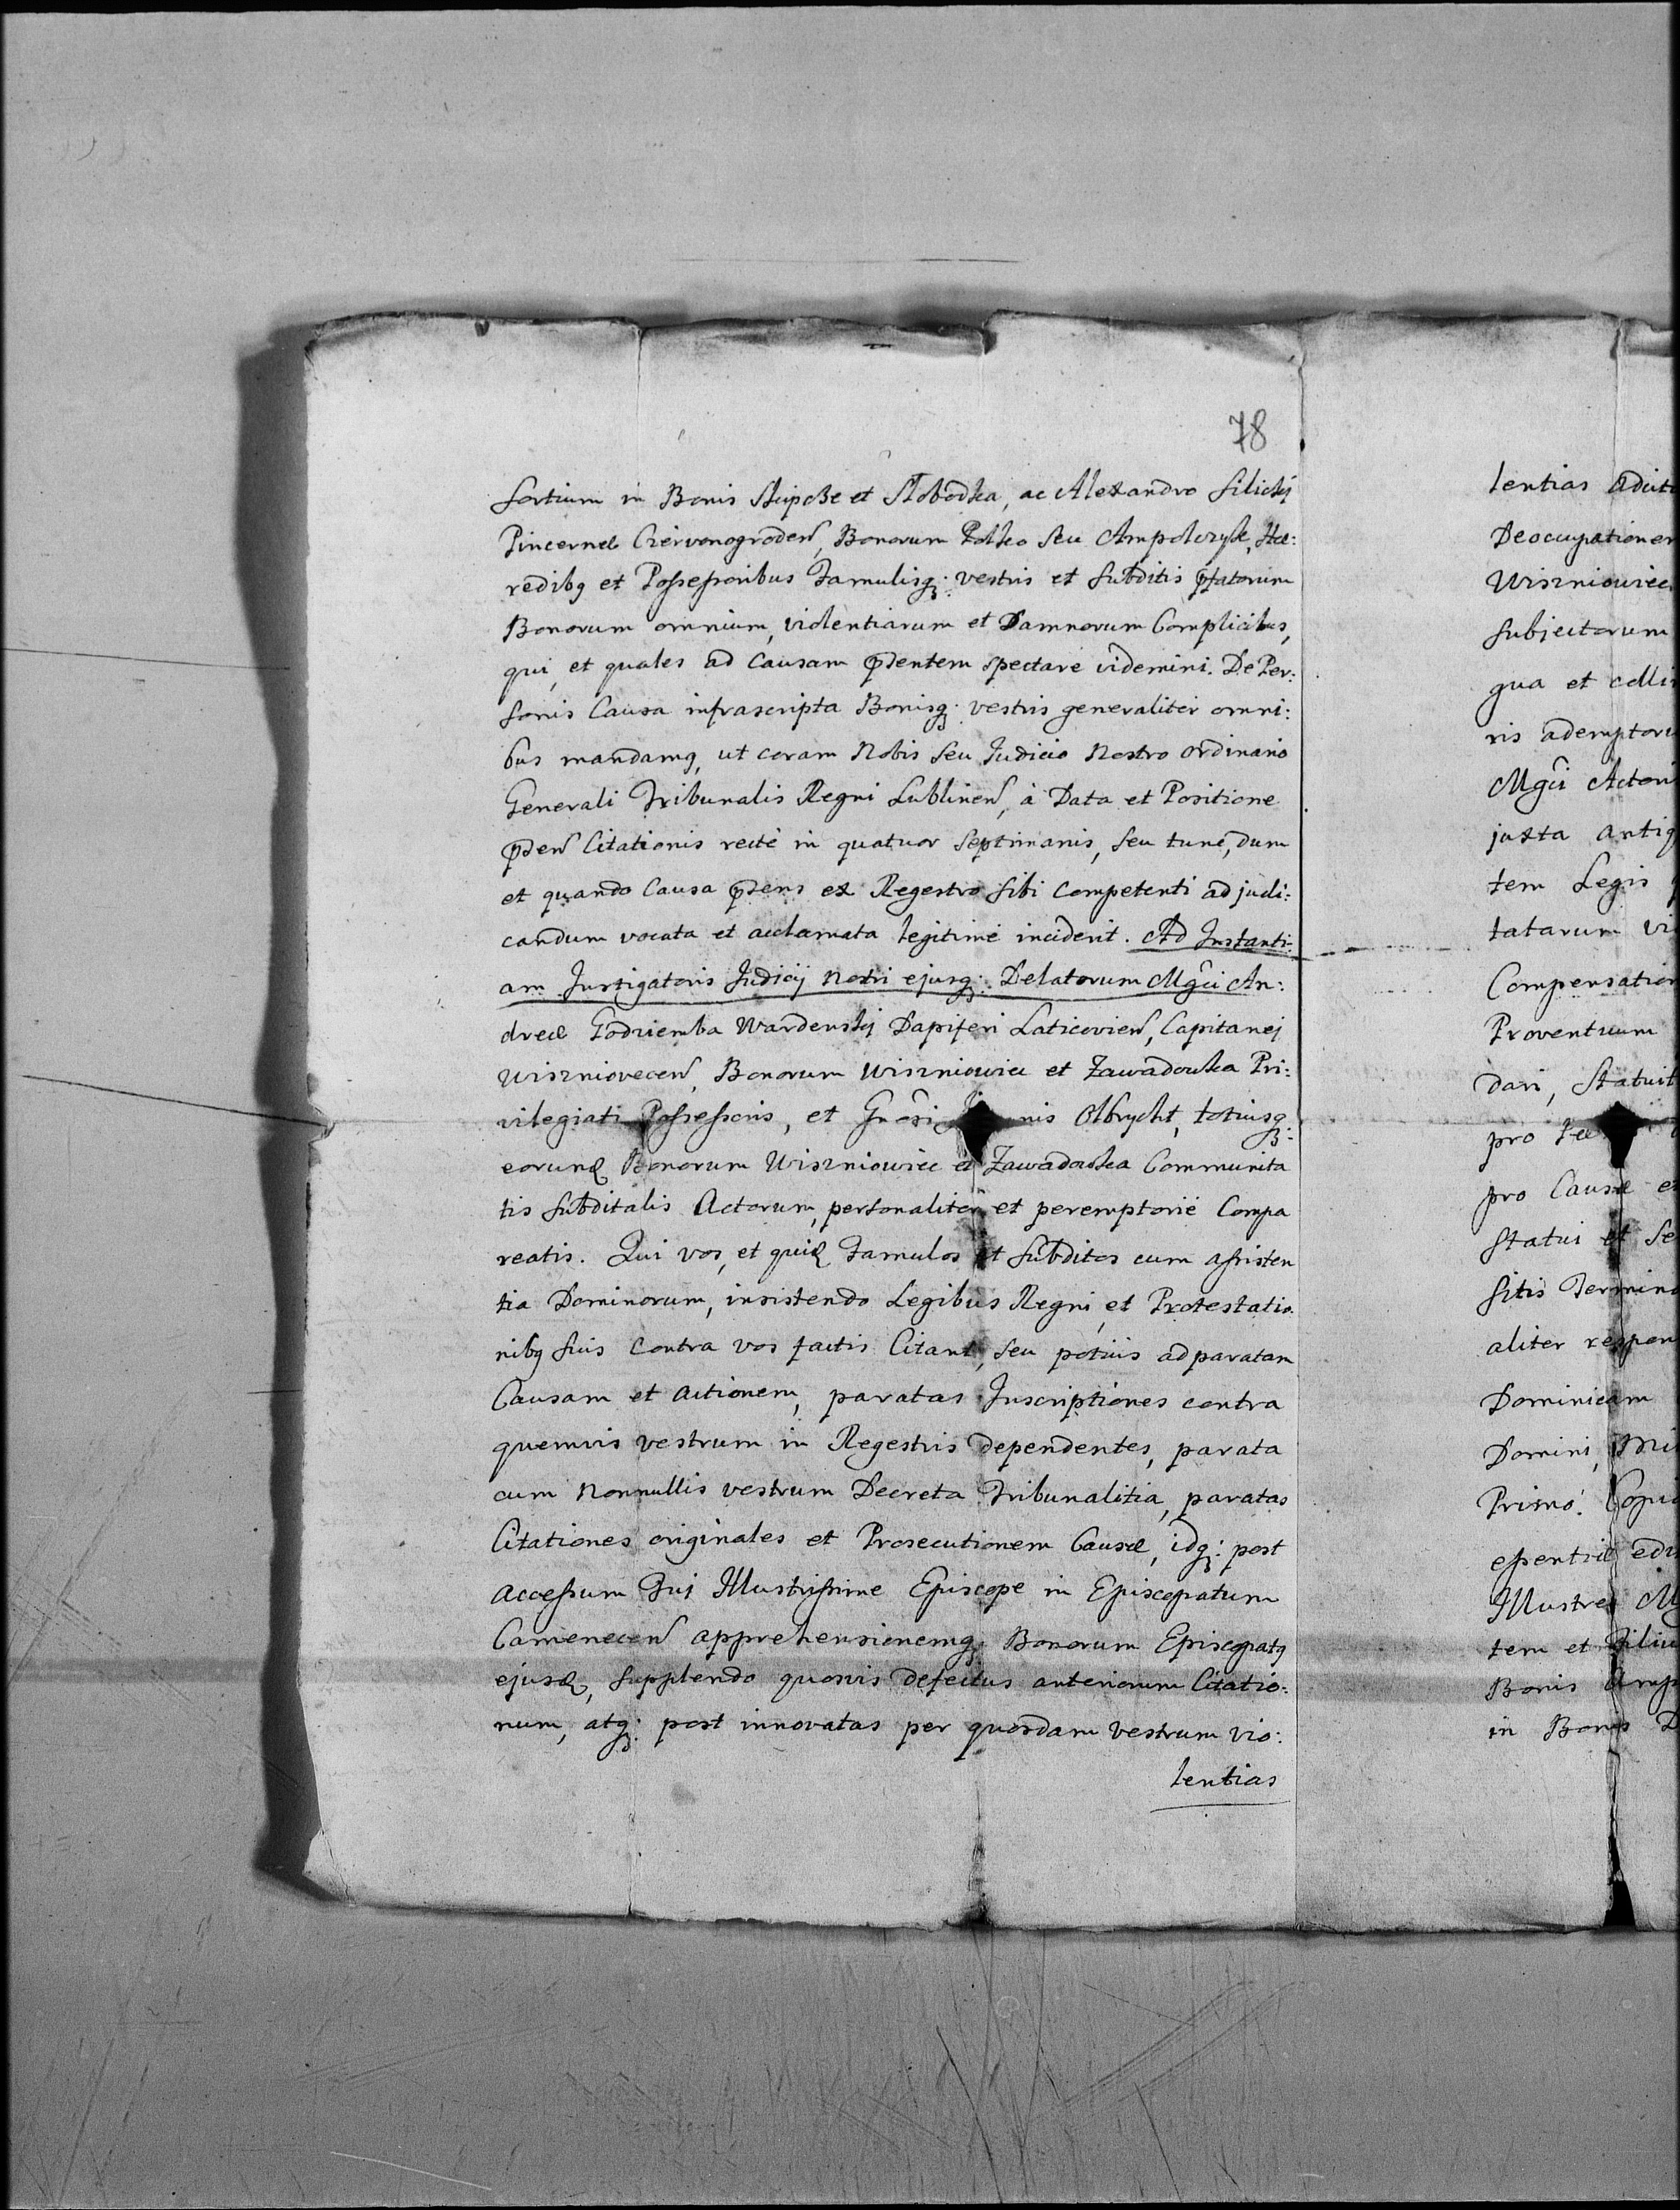 78
sortium in Bonis Skipcze et Slobodka, ac Alexandro Silickij
Pincernæ Czervonogroden, Bonorum Polko seu Ampolczyk, Hæ:
redibq et Possessoribus Famulisq: vestris et subditis pfatorum
Bonorum omnium, violentiarum et Damnorum Complicibus,
qui, et quales ad Causam pdentem spectare videmini. De Per:
sonis Causa infrascripta Bonisq: vestris generaliter omni:
bus mandamq, ut coram Nobis seu Judicio Nostro ordinario
Generali Tribunalis Regni Lublinen, à Data et Positione
pden Citationis recté in quatuor septimanis, seu tunc, dum
et quando Causa pdens ex Regestro sibi competenti ad judi:
candum vocata et acclamata legitimé inciderit. Ad Instanti:
am Instigatoris Judicij Nostri ejusq: Delatorum Mgci An:
dreæ Godziemba Wardenskij Dapiferi Laticovien, Capitanej
Wiszniovecen, Bonorum Wiszniowiec et Zawadowka Pri:
vilegiati Possessoris, et Gnosi nis Olbrycht, totiusq:
eorund Bonorum Wiszniowiec et Zawadowka Communita
tis subditalis Actorum, personaliter et peremptorié Compa
reatis. Qui vos, et quid Famulos et subditos cum assisten
tia Dominorum, insistendo Legibus Regni, et Protestatio
nibq suis contra vos factis Citant, seu potius ad paratam
Causam et actionem, paratas Inscriptiones contra
quemvis vestrum in Regestris dependentes, parata
cum Nonnullis vestrum Decreta Tribunalitia, paratas
Citationes originales et Prosecutionem Causæ, idq: post
accessum Tui Illustrissime Episcope in Episcopatum
Camenecen apprehensionemq: Bonorum Episcopatq
ejusd, supplendo quosvis defectus anteriorum Citatio:
num, atq: post innovatas per quosdam vestrum vio:
lentias
lentias
Deoccupationem
Wiszniowiec
subjectorum
gua et
ris
Mgci Actori
juxta antiq
tem Legis
tatarum vi
Compensation
Proventuum
dari, statuit
pro
pro Causæ
statui et se
sitis Termin
aliter respon
Dominicam
Domini, Mi
Primo.

Illustre M
tem et Filiu
Bonis Amp
in Bonis D